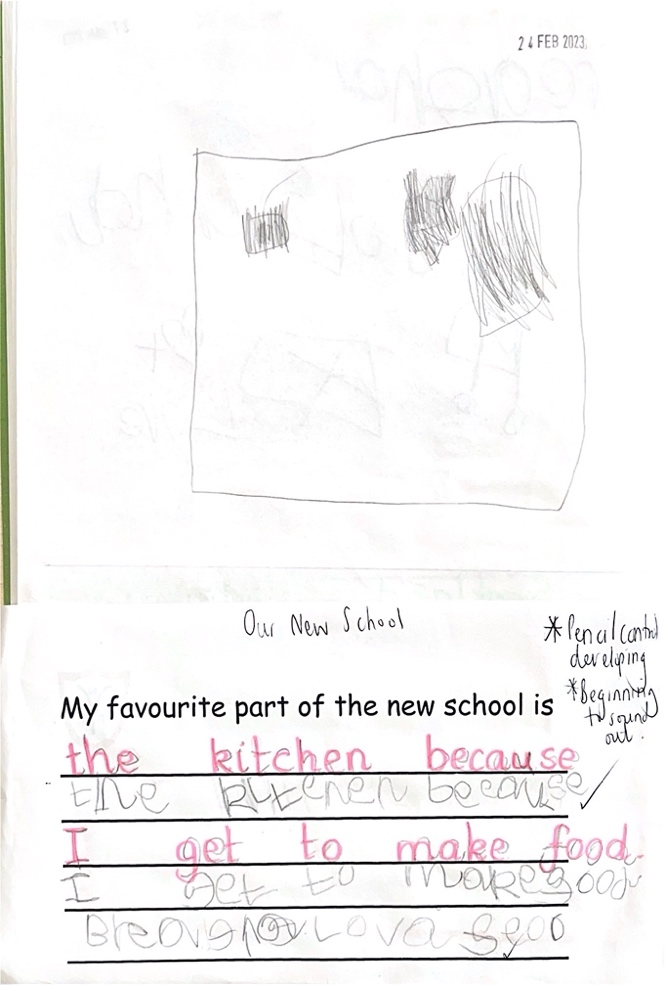 24 FEB 2023
Our New School
* Pencil control
developing
* Beginning
to sound
out.
My favourite part of the new school is
the kitchen because
the kitchen because
I get to make food.
I get to make food